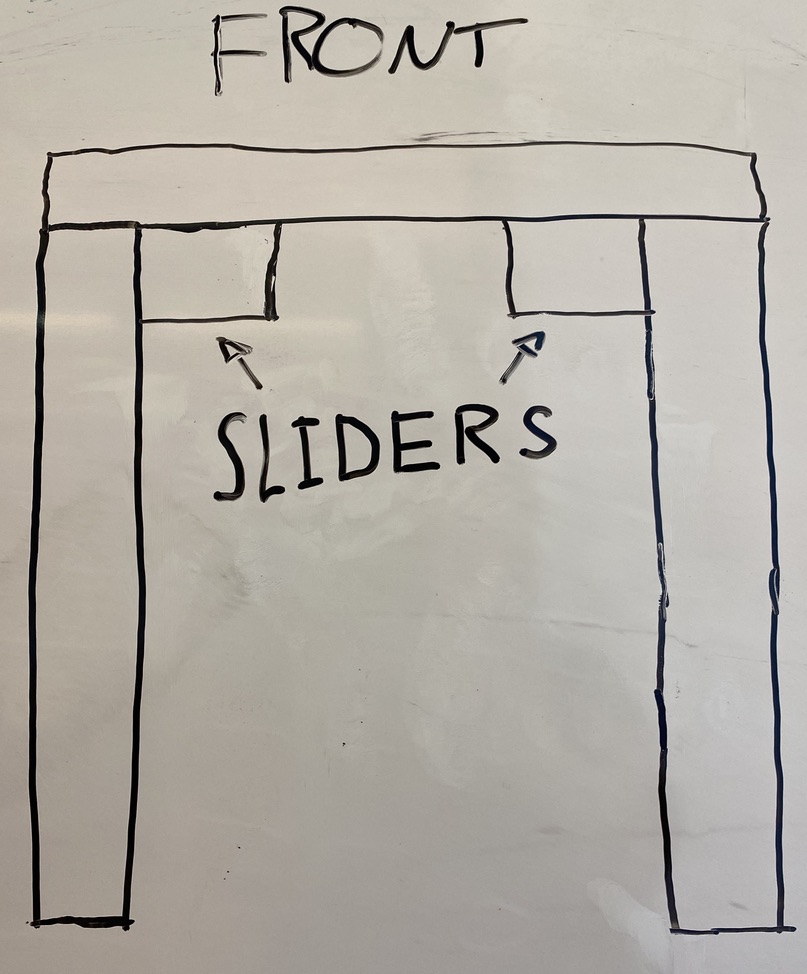 FRONT
SLIDERS